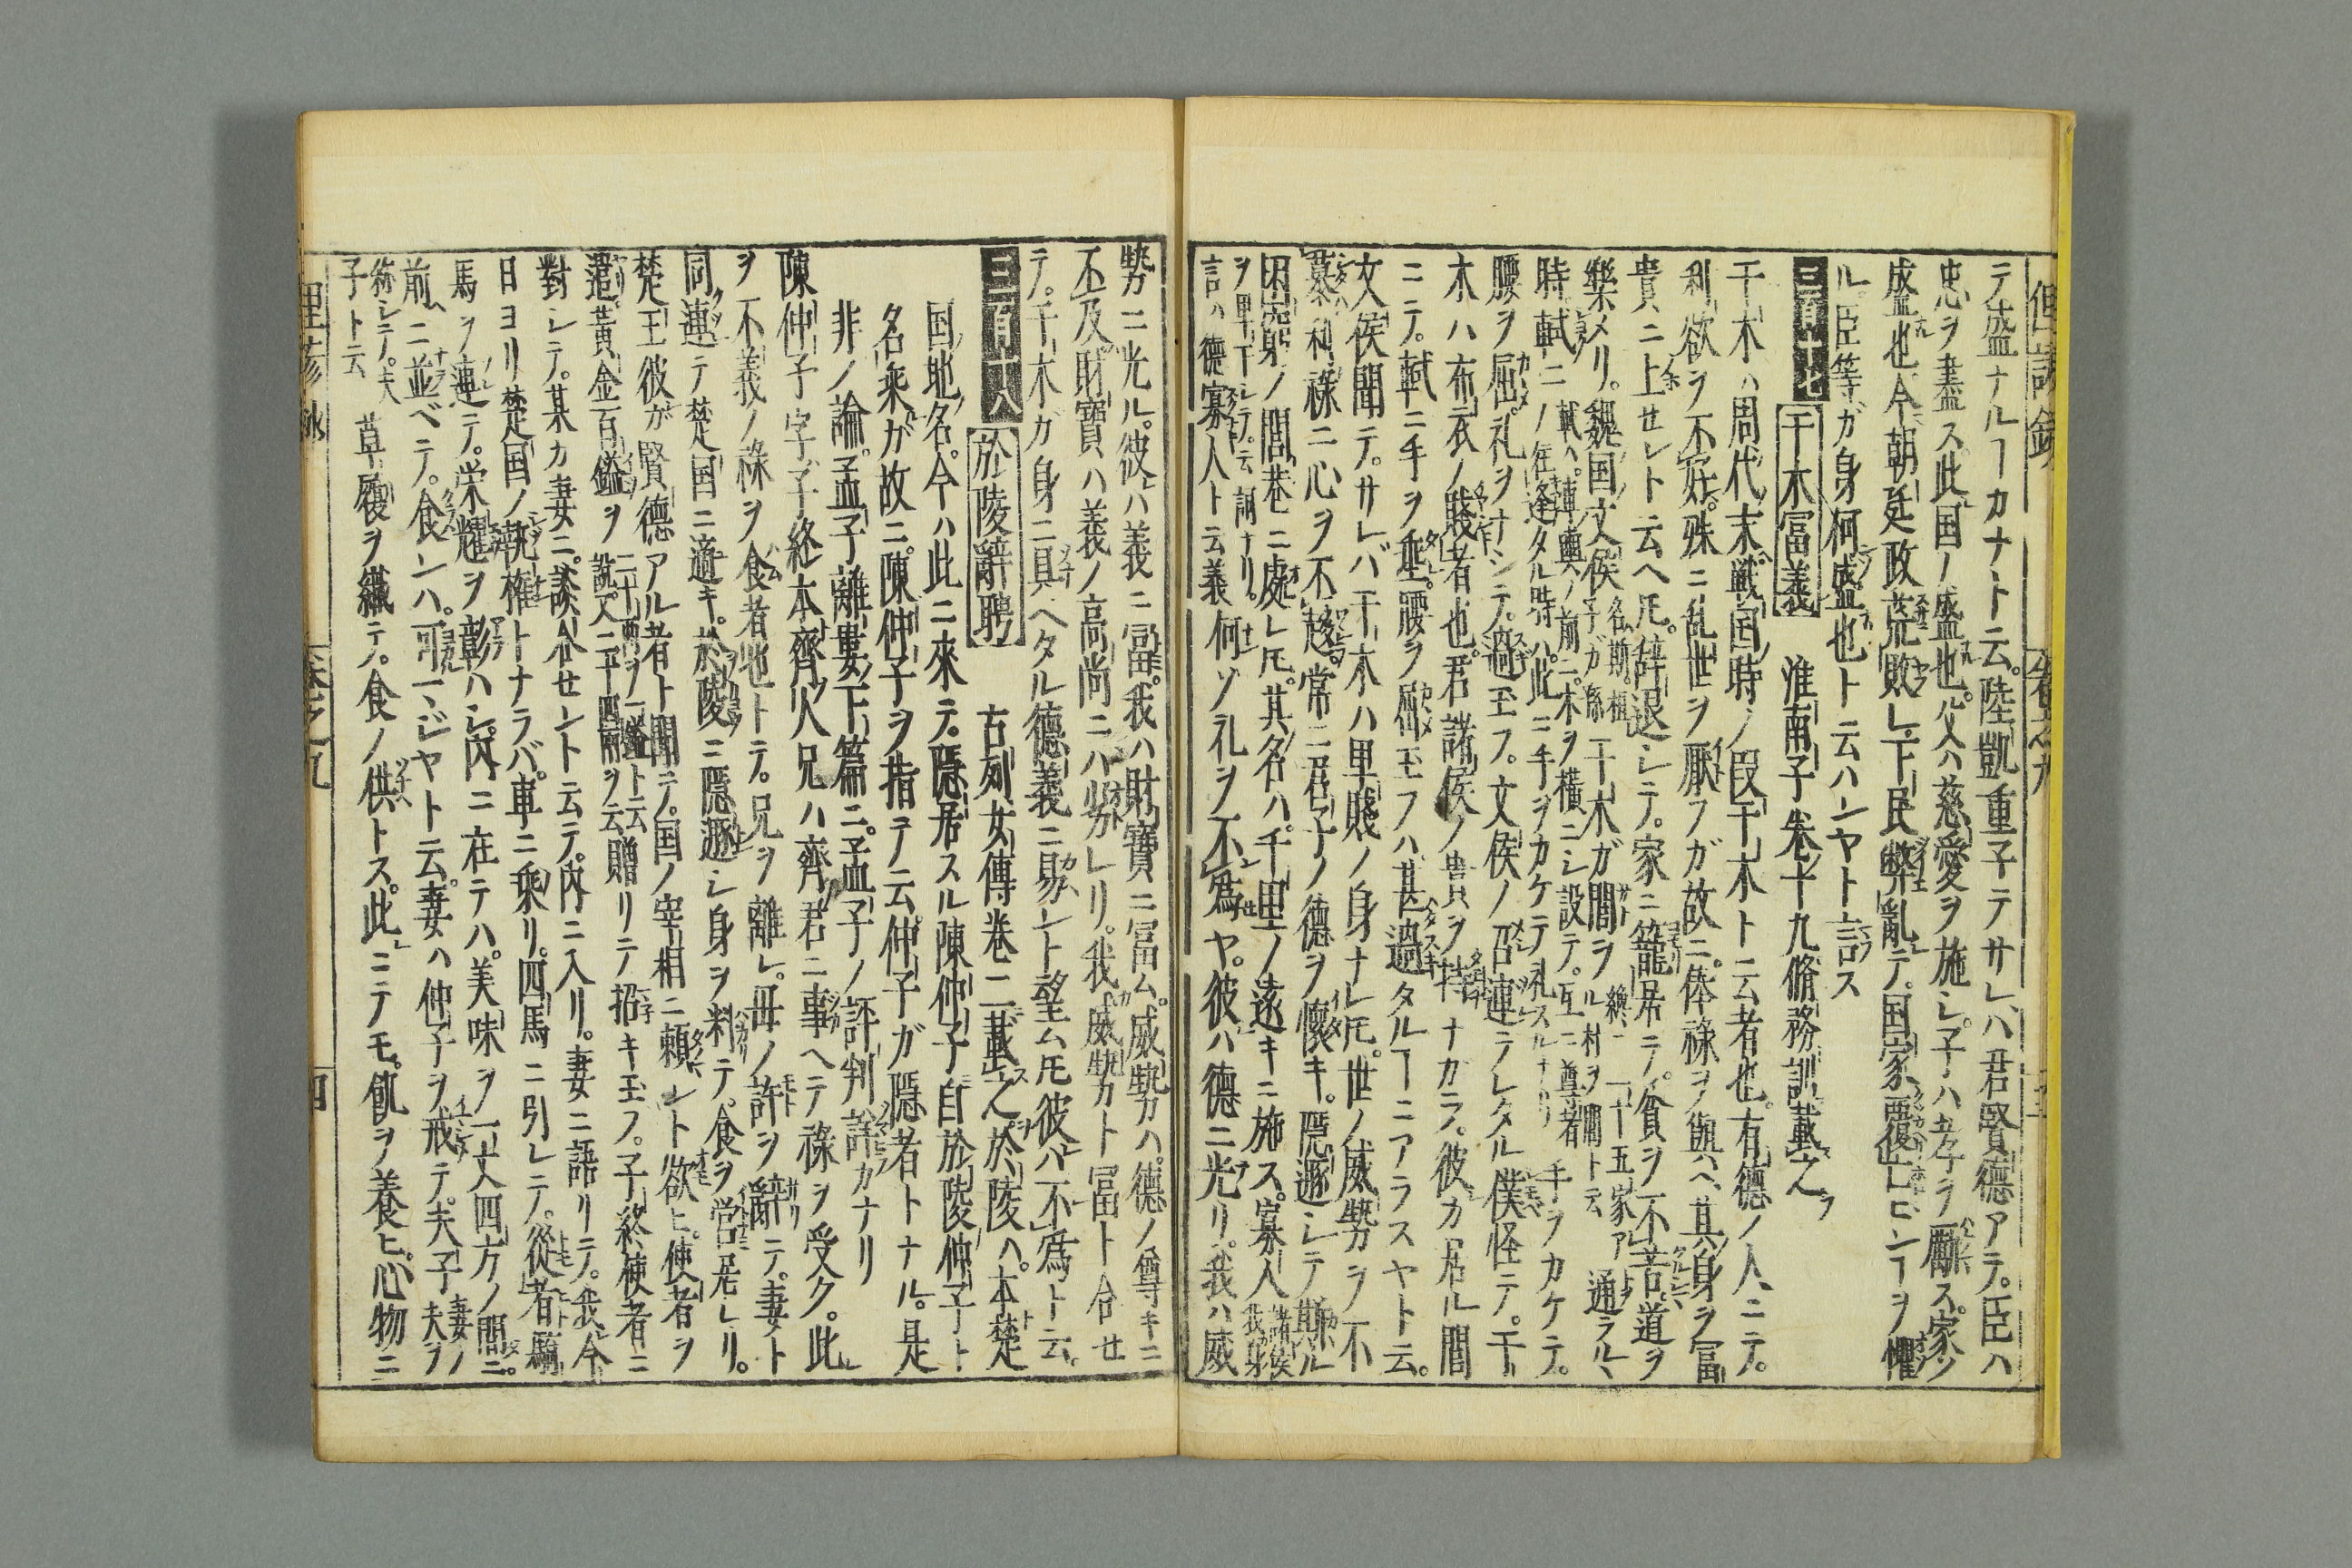 テ盛ナルヿカナト云。陸凱重子テサレハ君賢德アテ。臣ハ
忠ヲ盡ス此国ノ盛也。父ハ慈愛ヲ施シ子ハ孝ヲ勵ス。家ノ
盛也今朝廷政荒敗レ下民弊亂テ。国家覆亡センヿヲ懼
ル臣等ガ身何盛也ト云ハンヤト言ス
三百十七 干木冨義 淮南子巻十九脩務訓載之
干木ハ周代ノ末戦国時ノ段干木ト云者也。有德ノ人ニテ。
利欲ヲ不好。殊ニ乱世ヲ厭フガ故ニ。俸祿ヲ與ヘ其身ヲ冨
貴ニ上セント云ヘ𪜈。辞退シテ。家ニ籠居ニテ。貧ヲ不苦。道ヲ
樂メリ。魏国文侯 名斯。桓子ガ孫 干木ガ閭ヲ 二十五家アル村ヲ閭ト云 通ラルヽ
時軾ニノ 軾ハ。車輿ノ前ニ。木ヲ横ニシ設テ。互ニ尊者ニ逢タル時ハ。此ニ手ヲカケテ礼スルナリ 手ヲカケテ。
腰ヲ屈。礼ヲナシテ。過玉フ。文侯ノ召連ラレタル僕怪テ。干
木ハ布衣ノ賤者也。君諸侯ノ貴ヲ持ナガラ。彼カ居ル閭
ニテ。軾ニ手ヲ垂。腰ヲ俯玉フハ。甚過タルヿニアラスヤト云。
文侯聞テ。サレバ干木ハ卑賤ノ身ナレ𪜈。世ノ威勢ヲ不
慕利祿ニ心ヲ不趨。常ニ君子ノ德ヲ懷キ。隠遯シテ斯ル
困窮ノ閭巷ニ處レ𪜈。其名ハ。千里ノ遠キニ施ス。寡人 諸侯我身
ヲ卑下シテ。云詞ナリ。言ハ德寡人ト云義 何ゾ礼ヲ不為ヤ。彼ハ德ニ光リ。我ハ威
勢ニ光ル。彼ハ義ニ冨。我ハ財寶ニ冨ム。威勢ハ。德ノ尊キニ
不及財寶ハ義ノ高尚ニハ劣レリ。我威勢ト冨ト合セ
テ。干木ガ身ニ具ヘタル德義ニ易ント望ム𪜈彼ハ不為ト云。
三百十八 於陵辭聘 古列女傳巻二載之於陵ハ。本楚
国ノ地名。今ハ此ニ來テ。隠居スル陳仲子自於陵仲子ト
名乘ガ故ニ。陳仲子ヲ指テ云仲子ガ隠者トナル。是
非ノ論。孟子離婁下篇ニ。孟子ノ評判詳カナリ
陳仲子字ハ子終本齊人兄ハ齊君ニ事ヘテ祿ヲ受ク。此
ヲ不義ノ祿ヲ食者也トテ。兄ヲ離レ。母ノ許ヲ辭テ。妻ト
同連テ楚国ニ適キ。於陵ニ隠遯シ身ヲ料テ。食ヲ営居レリ。
楚王彼ガ賢德アル者ト聞テ。国ノ宰相ニ頼ント欲ヒ。使者ヲ
遣。黃金百鎰ヲ 二十兩ヲ一鎰ト云説。又二十四兩ヲ云 贈リテ招キ玉フ。子終使者ニ
對シテ。某カ妻ニ。談合セント云テ。内ニ入リ。妻ニ語リテ。我今
日ヨリ楚国ノ執権トナラバ。車ニ乘リ。四馬ニ引レテ。從者騎
馬ヲ連テ。栄耀ヲ彰ハシ。内ニ在テハ。美味ヲ一丈四方ノ間ニ。
前ニ並ベテ。食ンハ。可ナランジヤト云。妻ハ仲子ヲ戒テ。夫子 妻ノ夫ヲ
称シテ。夫子ト云 草履ヲ織テ。食ノ供トス。此ニテモ。飢ヲ養ヒ。心物ニ